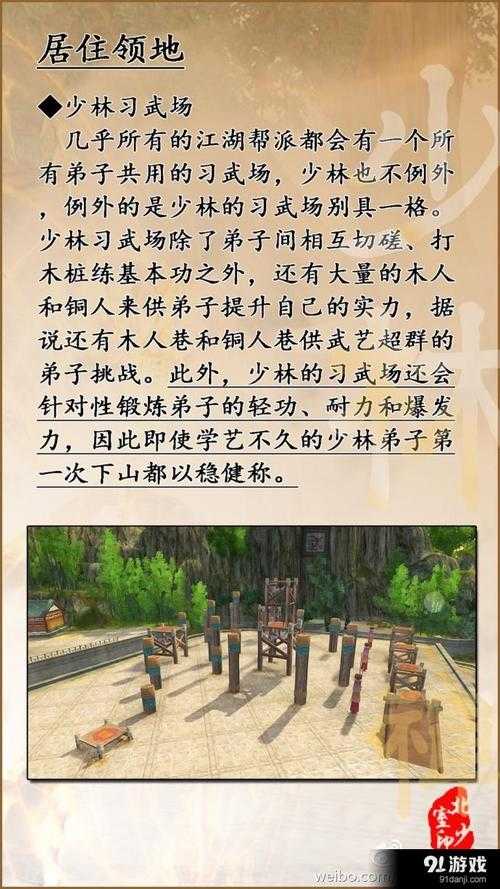 居住领地
◆少林习武场
几乎所有的江湖帮派都会有一个所
有弟子共用的习武场，少林也不例外
，例外的是少林的习武场别具一格。
少林习武场除了弟子间相互切磋、打
木桩练基本功之外，还有大量的木人
和铜人来供弟子提升自己的实力，据
说还有木人巷和铜人巷供武艺超群的
弟子挑战。此外，少林的习武场还会
针对性锻炼弟子的轻功、耐力和爆发
力，因此即使学艺不久的少林弟子第
一次下山都以稳健称。
少林
北少
室印
weibo.com
91游戏
91danji.com